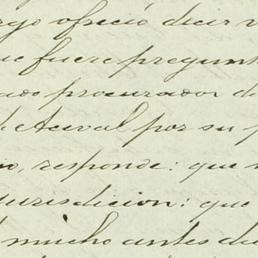 rgo ofreció decir v
ue fuere pregunt
ado procurador d
l. Acuval por su p
no, responde: que
jurisdicion: que
mucho antes de